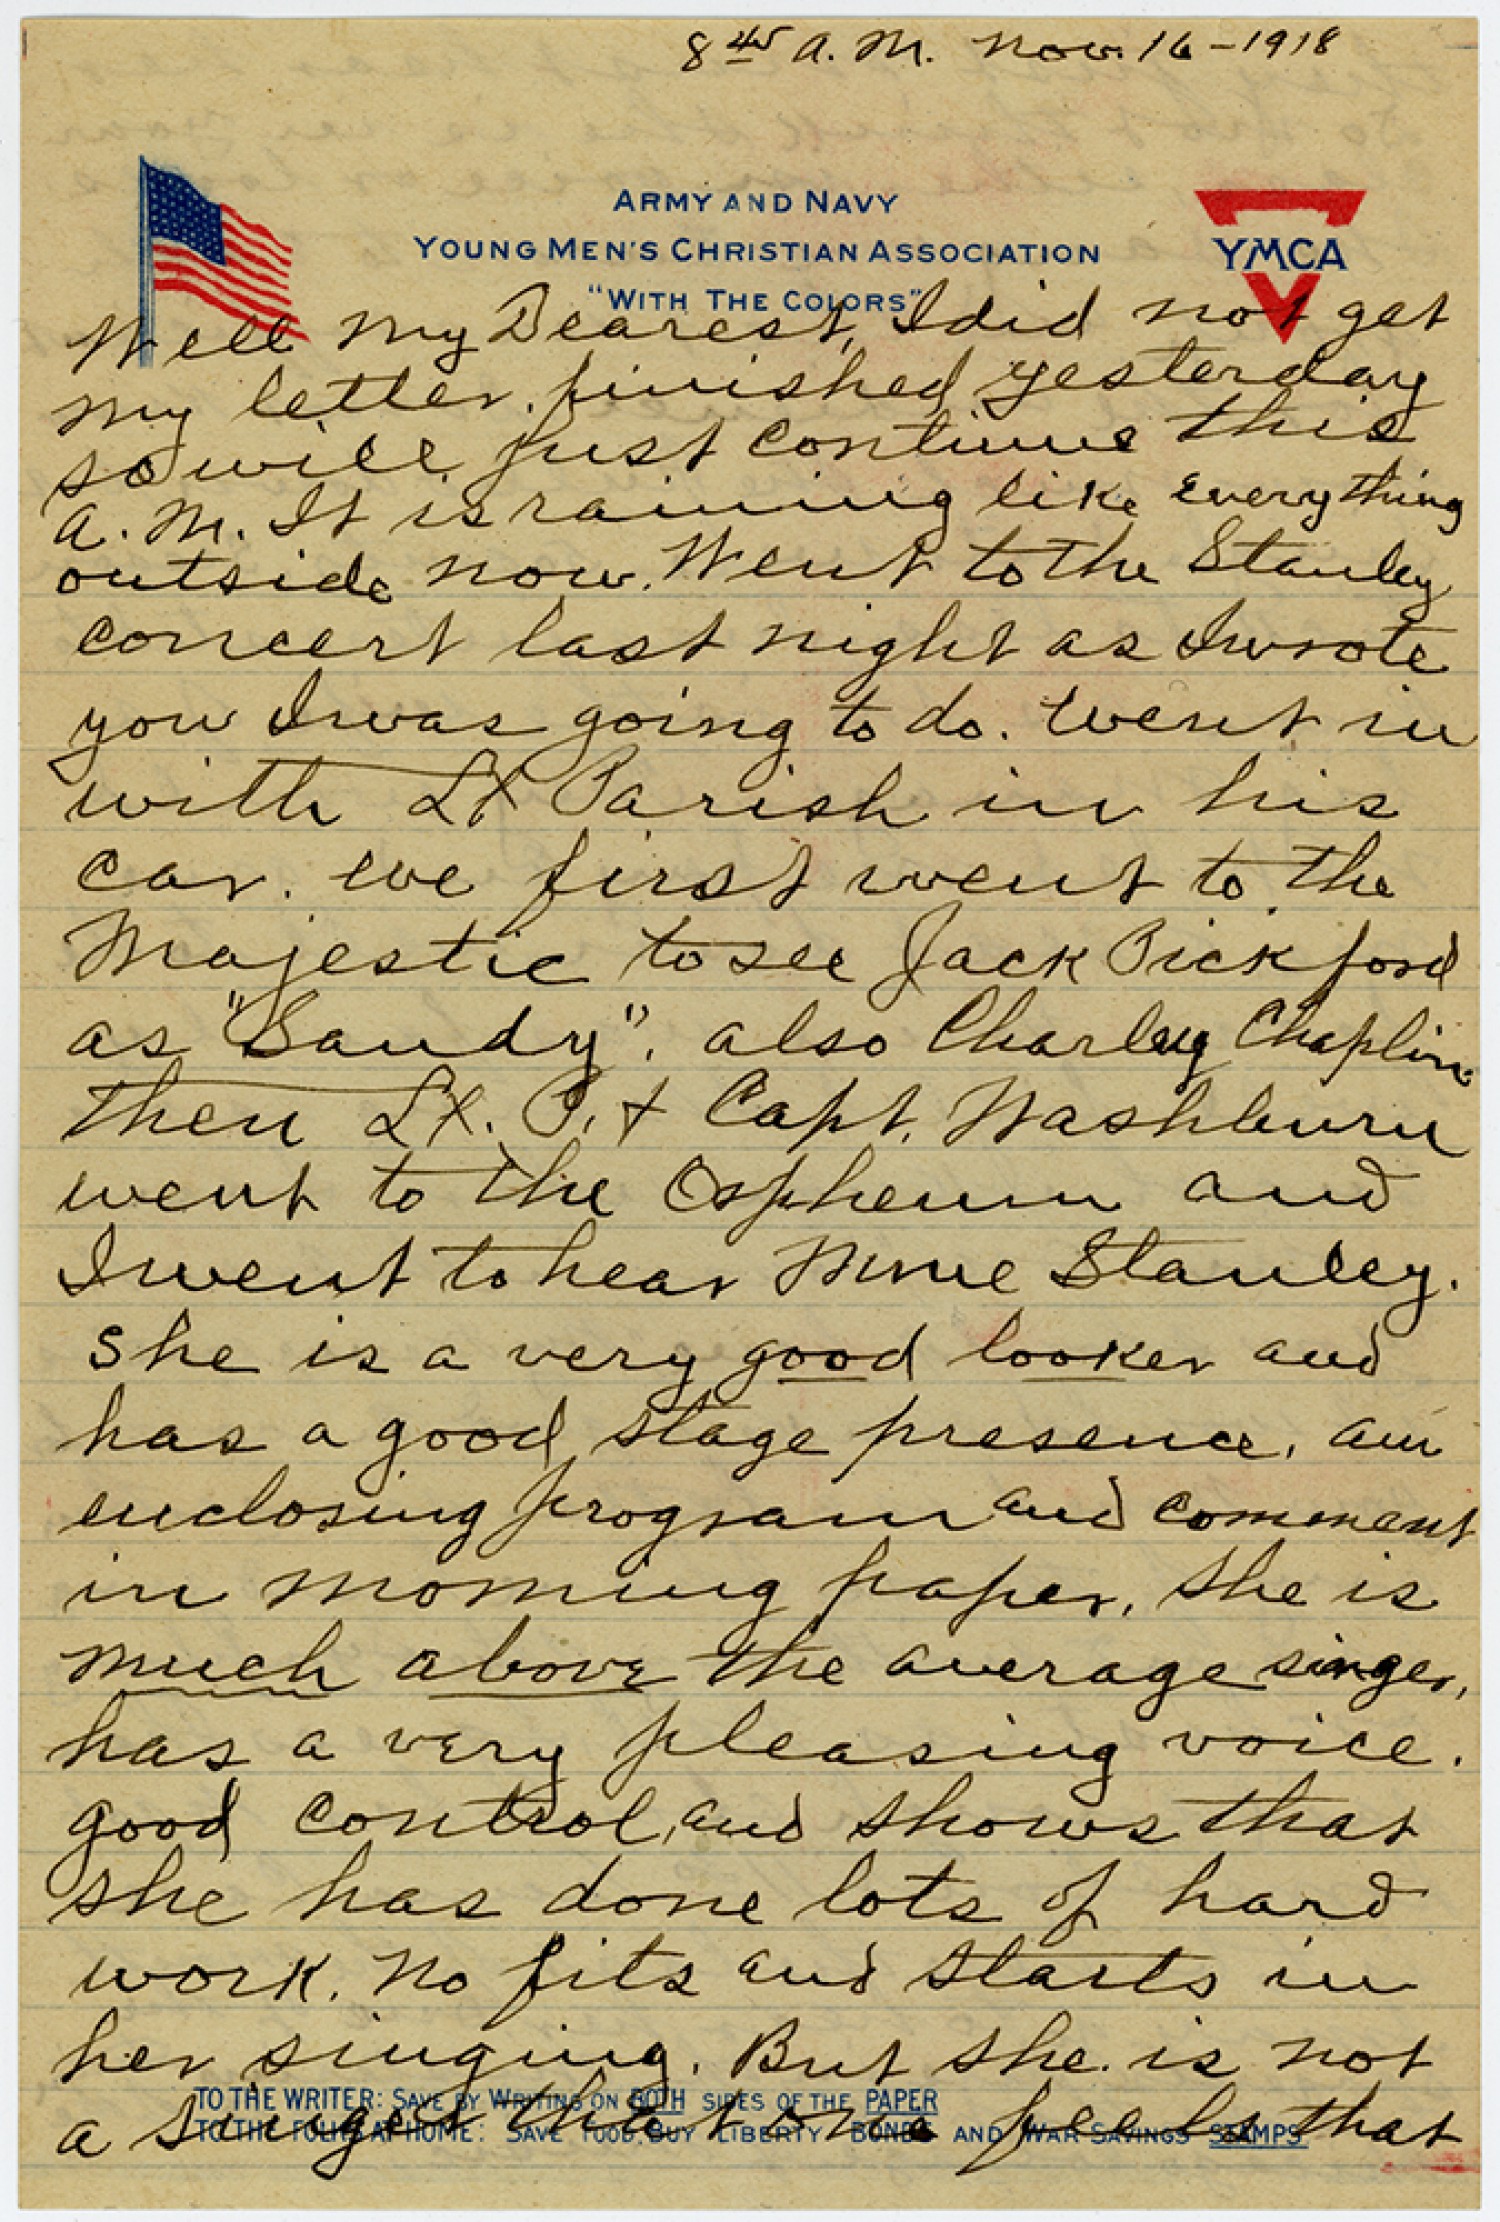 8 45 A.M. Nov. 16 - 1918
ARMY AND NAVY
YOUNG MEN'S CHRISTIAN ASSOCIATION
"WITH THE COLORS"
YMCA
Well My Dearest, I did not get
my letter finished yesterday
so will just continue this
A.M. It is raining like everything
outside now. Went to the Stanley
concert last night as I wrote
you I was going to do. Went in
with Lt Parish in his
car. We first went to the
Majestic to see Jack Pickford
as "Sandy". also Charley Chaplin
then Lt. P. + Capt. Washburn
went to the Orpheum and
I went to hear Mme Stanley.
She is a very good looker and
has a good stage presence. am
enclosing program and comment
in morning paper. She is
much above the average singer,
has a very pleasing voice.
good control, and shows that
she has done lots of hard
work. No fits and starts in
her singing. But she is not
a singer that one feels that
TO THE WRITER: SAVE BY WRITING ON BOTH SIDES OF THE PAPER
TO THE FOLKS AT HOME: SAVE FOOD, BUY LIBERTY BONDS AND WAR SAVINGS STAMPS